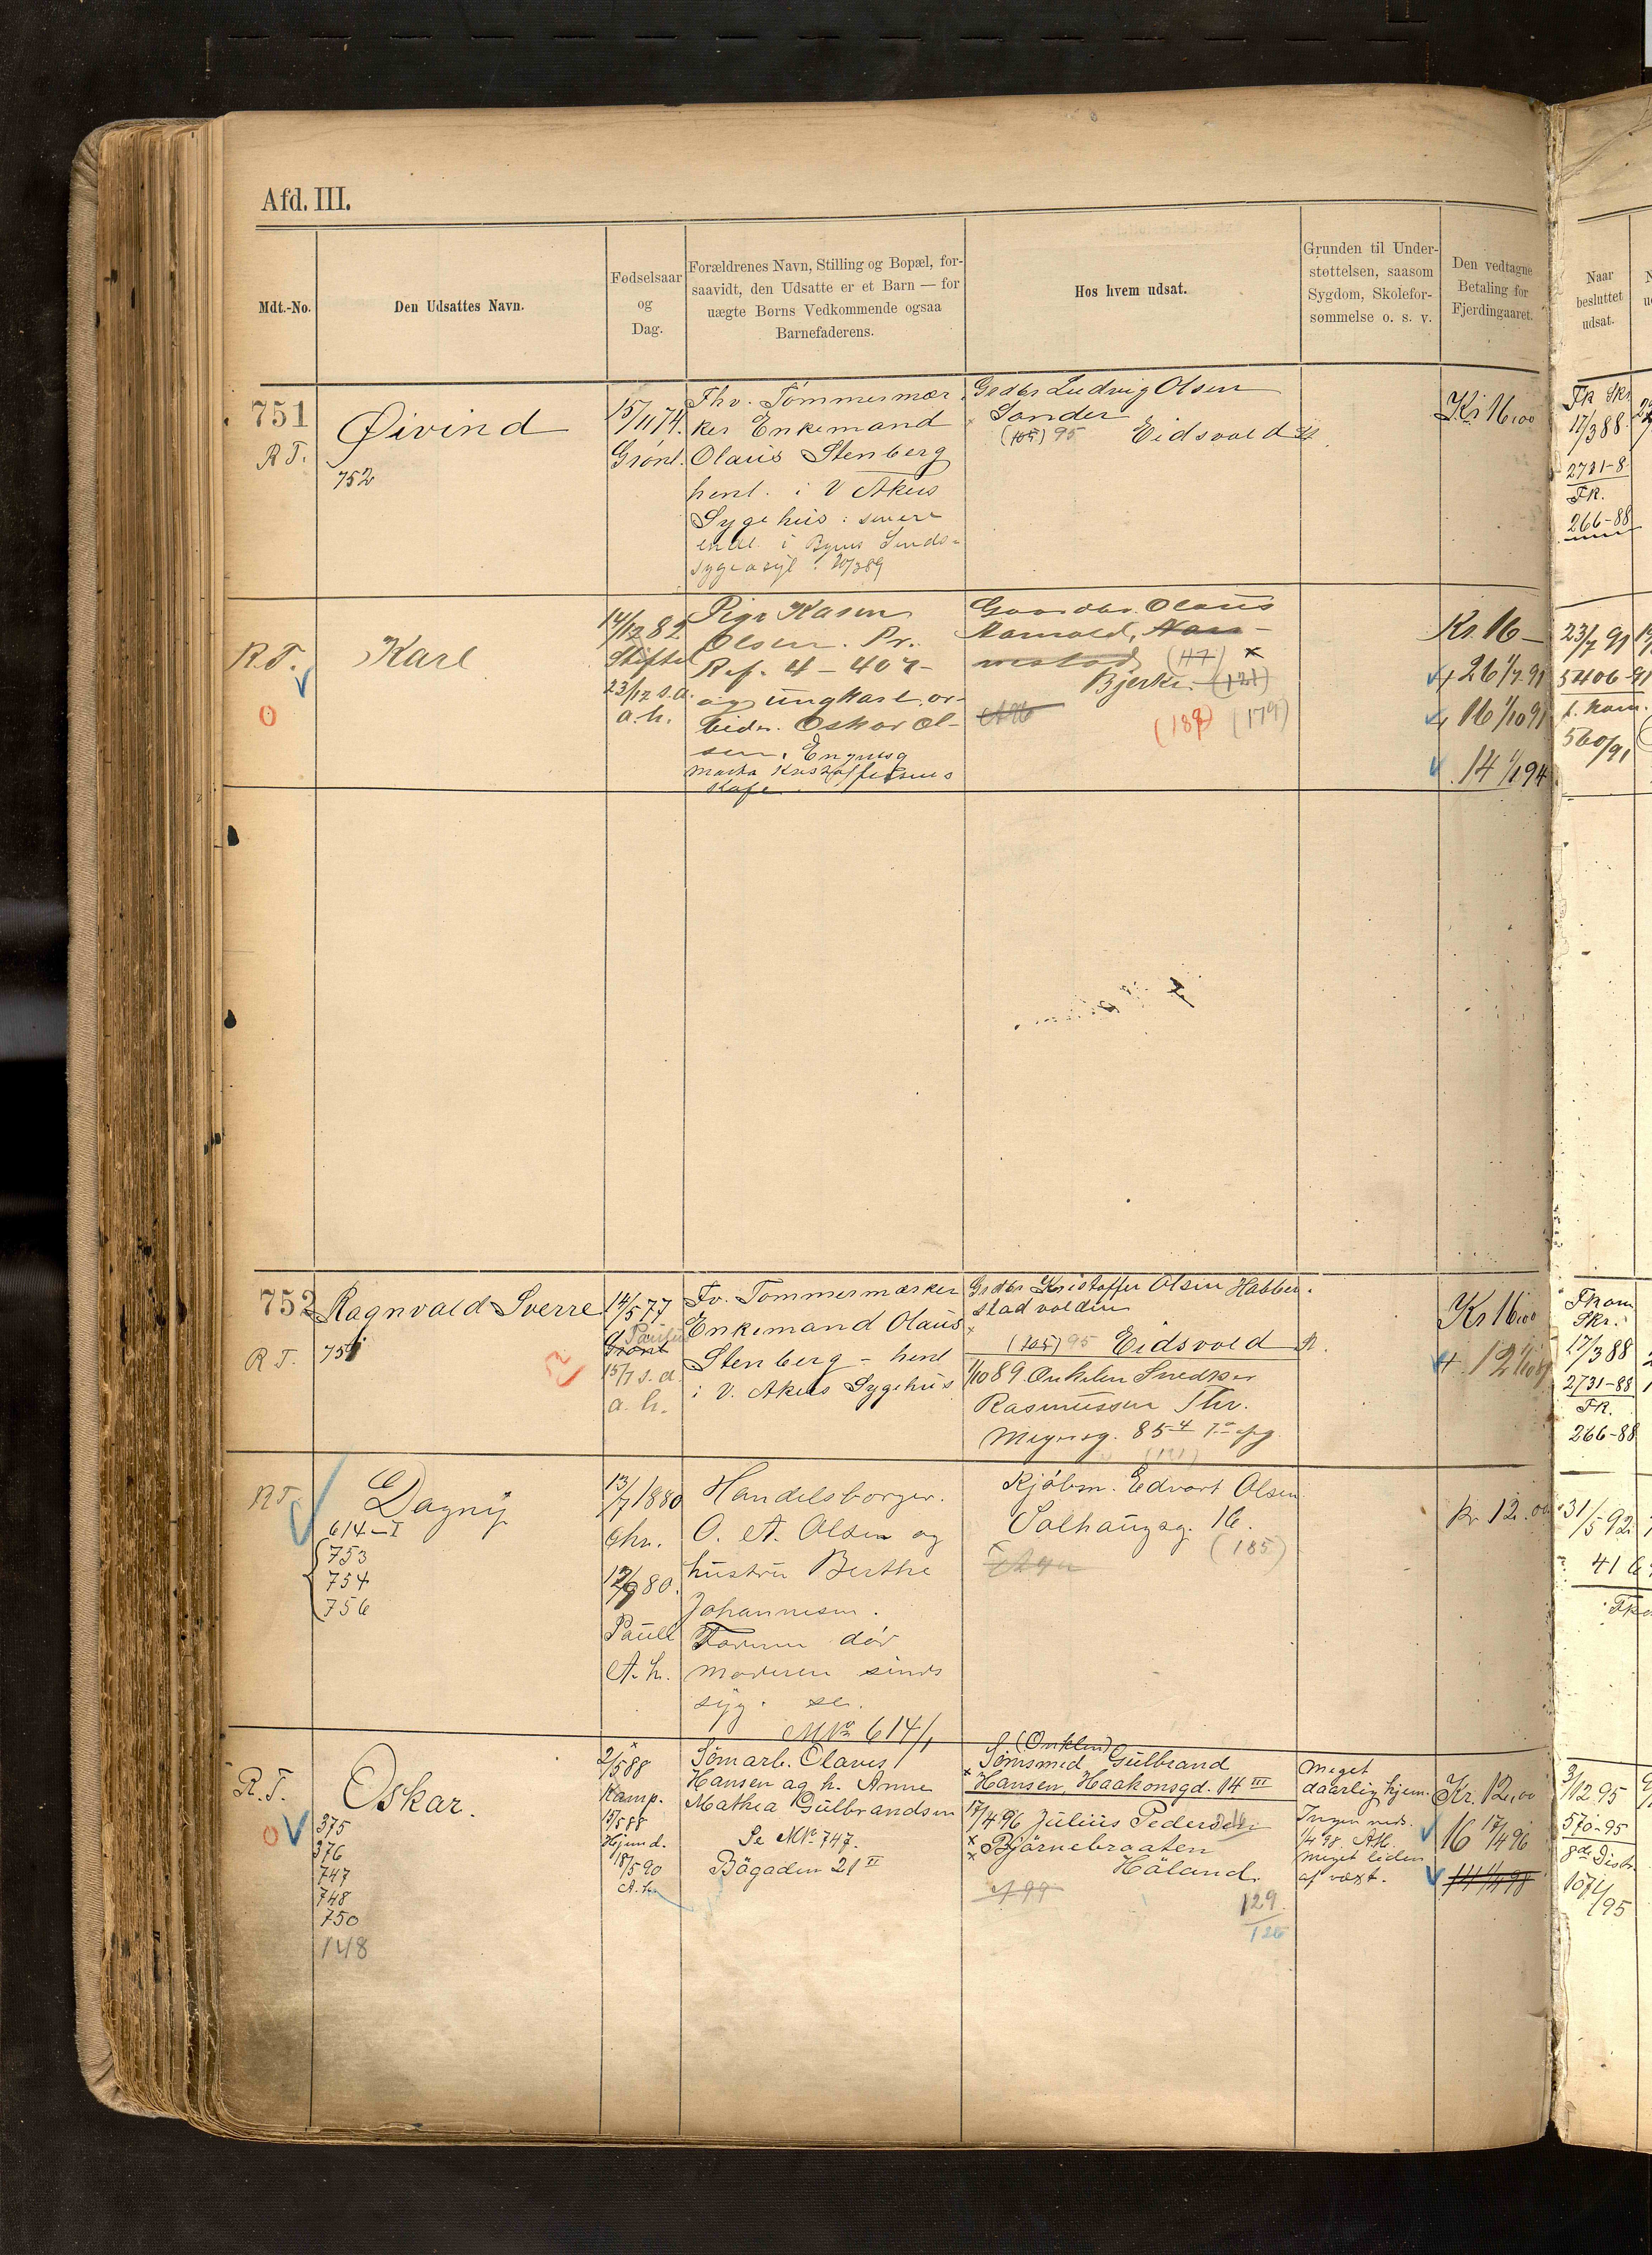 Afd. III.
Mdt.-No.
Den Udsattes Navn.
Fødselsaar
og
Dag.
Forældrenes Navn, Stilling og Bopæl, for-
saavidt, den Udsatte er et Barn — for
uægte Børns Vedkommende ogsaa
Barnefaderens.
Hos hvem udsat.
Grunden til Under-
støttelsen, saasom
Sygdom, Skolefor-
sømmelse o. s. v.
Den vedtagne
Betaling for
Fjerdingaaret.
Naar
besluttet
udsat.
751
R T.
Øivind
752
15/11 74.
Grønl.
Fhv. Tømmermær-
ker Enkemand
Olaus Stenberg
henl. i V Akers
Sygehus: senere
i Byens Sinds-
sygeasyl.
Gadbr Ludvig Olsen
Sander
(105) 95 Eidsvold
Kr 16,00
FR Skr
17/3 88.
2731-8
FR.
266-88
R.T.
0
Karl
14/12 82
Stiftel
23/12 s.a.
a. h.
Pige Karen
Olsen. Pr.
Ref. 4 – 407 –
og ungkarl, ar-
beider Oskar Ol-
sen,
Kafe
Gaardbr. Olaus
(117) x
Bjerke (121)
(179)
Kr. 16 –
26 1/7 91
16 1/10 91
14 1/1 94
23/7 91
5406-91
560/91
752
R T.
Ragnvald Sverre
751
14/5 77
Grønl
15/7 s. a.
a. h.
Fv. Tømmermærker
Enkemand Olaus
Stenberg – henl
i V. Akers Sygehus
Gadbr Kristoffer Olsen Habber-
stad volden
(105) 95 Eidsvold
1/10 89. Onkelen Snedker
Rasmussen Thv.
Meyersg. 85
Kr 16,00
Fkom
Skr.
17/3 88
2731-88
FR.
266-88
R T.
Dagny
614 – I
753
754
756
13/7 1880
Chr.
12/9 80.
A. h.
Handelsborger.
O. A. Olsen og
hustru Berthe
Johannesen.
Faderen død
moderen sinds
syg. se
M No 614/1
Kjøbm. Edvart Olsen
Solhaugsg. 16.
(185)
Kr. 12.00
31/5 92
416
R.T.
0
Oskar.
375
376
747
748
750
148
2/5 88
Kamp.
Hjemd.
18/5 90
A. h.
Sömarb. Olaves
Hansen og h. Anne
Mathea Gulbrandsen
Se M No 747.
Bögaden 21 II
(Onklen)
Sömsmed Gulbrand
Hansen, Haakonsgd. 14 III
17/4 96 Julius Pedersen
Bjørnebraaten
Høland.
129
126
Meget
daarlig hjem.
Ingen
1/4 98. AH.
meget liden
af væxt.
Kr. 12,00
16 17/4 96
14 1/4 98
3/12 95
570-95
8de Distr.
1071/95